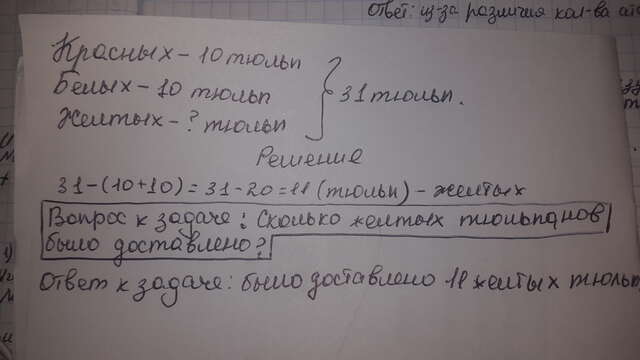 Красных - 10 тюльп
Белых - 10 тюльп
Желтых - ? тюльп
31 тюльп.
Решение
31-(10+10)=31-20=11 (тюльп) - желтых
Вопрос к задаче: Сколько желтых тюльпанов
было доставлено?
Ответ к задаче: было доставлено 11 желтых тюльп
Ответ: из за различия кол-ва